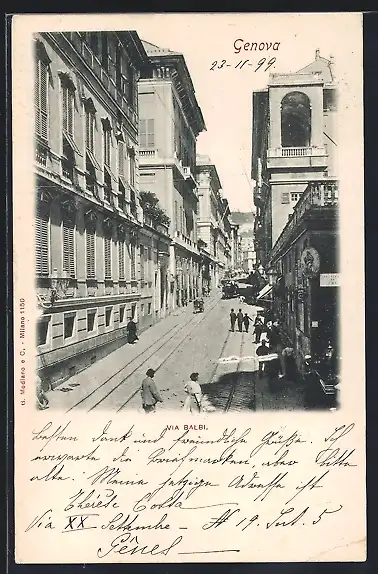 Genova
23-11-99.
G. Modiano e C. - Milano 1150
VIA BALBI.
besten Dank und freundliche Grüsse. Ich
erwarte die Briefmarken, aber bitte
alte. Meine jetzige Adresse ist
Thérèse Costa
Via XX Settembre - No 19. Int. 5
Gênes -